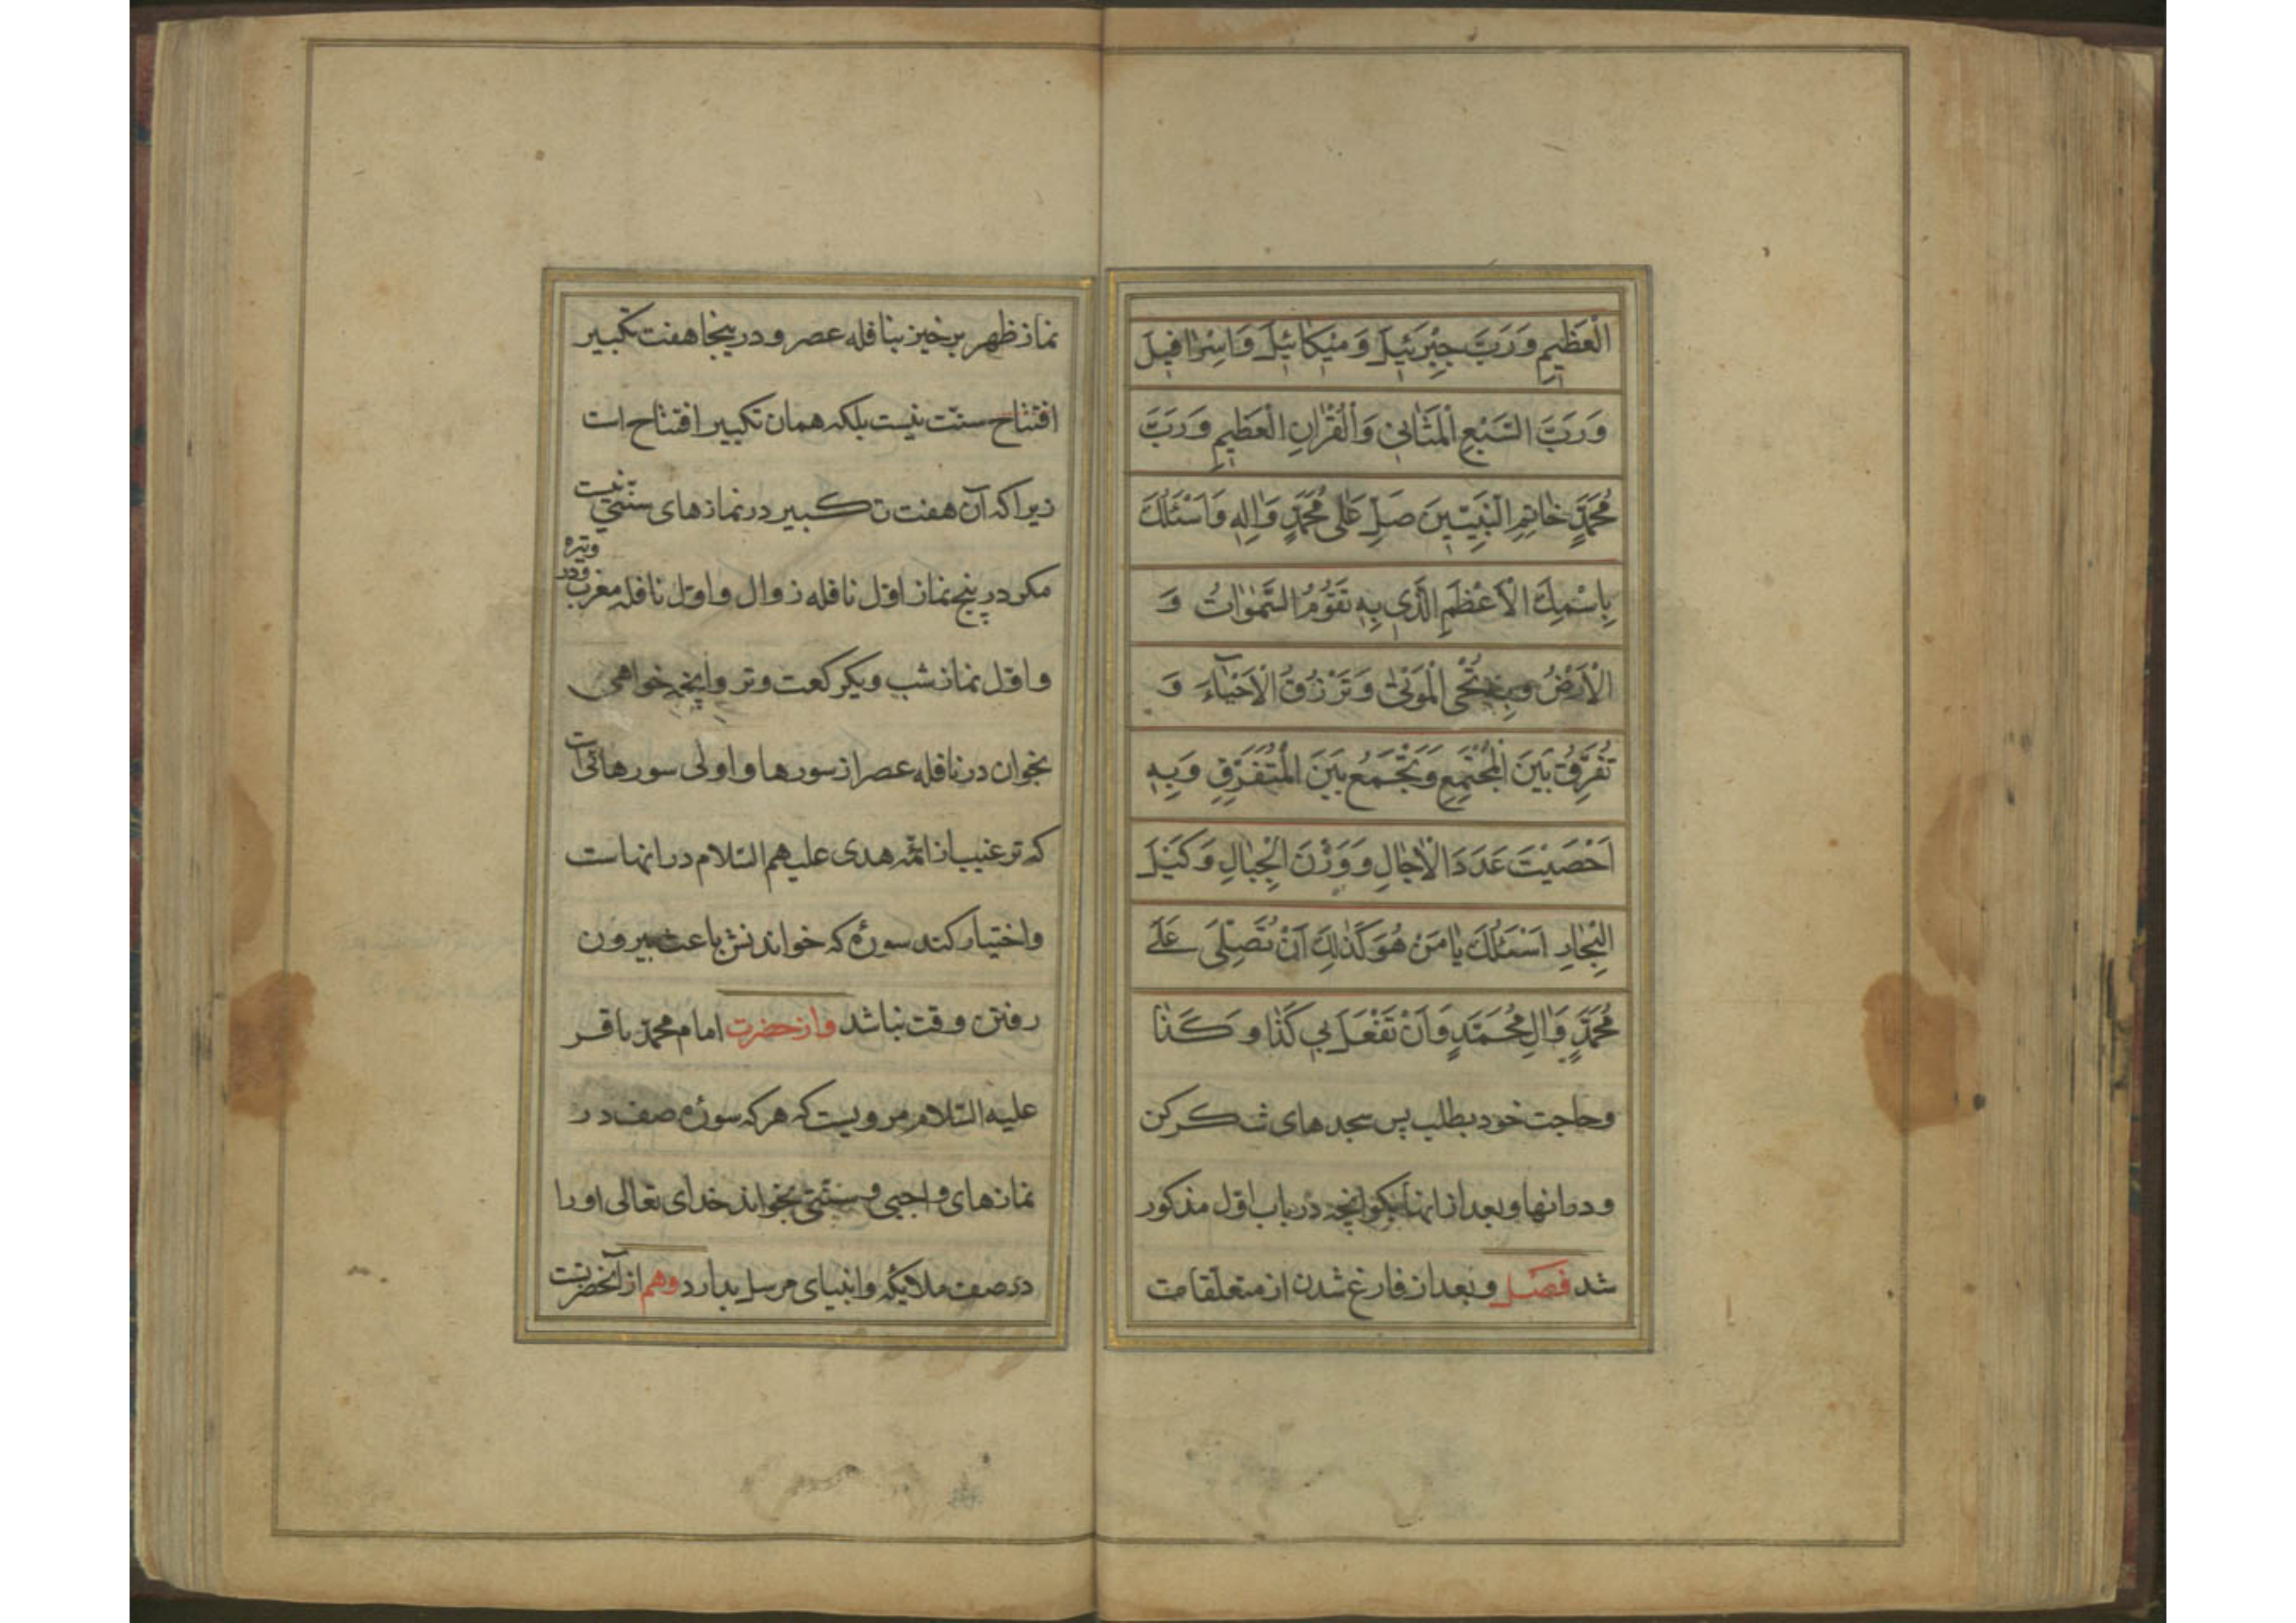 الْعَظِیمِ وَرَبَّ جِبْرَئیلَ وَمیکائیلَ وَاِسْرافیلَ
وَرَبَّ السَّبْعِ الْمَثانی وَالْقُرْانِ الْعَظیمِ وَرَبَّ
مُحَمَّدٍ خاتِمِ النَّبِیّینَ صَلِّ عَلی مُحَمَّدٍ وَالِهِ وَاَسْئَلُكَ
بِاسْمِكَ الْاَعْظَمِ الَّذی بِهِ تَقُومُ السَّمٰوٰاتُ وَ
الْاَرْضُ وَبِهِ تُحْیِی الْمَوْتیٰ وَتَرْزُقُ الْاَحْیآءَ وَ
تُفَرِّقُ بَیْنَ الْمُجْتَمِعِ وَتَجْمَعُ بَیْنَ الْمُتَفَرِّقِ وَبِهِ
اَحْصَیْتَ عَدَدَ الْاٰجالِ وَوَزْنَ الْجِبالِ وَكَیْلَ
الْبِحٰارِ اَسْئَلُكَ یٰا مَنْ هُوَ كَذٰلِكَ اَنْ تُصَلِّیَ عَلٰی
مُحَمَّدٍ وَالِ مُحَمَّدٍ وَاَنْ تَفْعَلَ بی كَذٰا وَكَذٰا
وحاجت خود بطلب پس سجدهای شکر کن
ودعا انها وبعد از انها بکو انچه در باب اول مذکور
شد فصل وبعد از فارغ شدن از متعلقات
نماز ظهر برخیز بنافله عصر ودرینجا هفت تکبیر
افتتاح سنّت نیست بلکه همان تکبیر افتتاح است
زیرا که آن هفت تکبیر در نمازهای سنّتی نیست
مکر در پنج نماز اوّل نافله زوال واوّل نافله مغرب ودر وتیره
واوّل نماز شب ویکرکعت وتر وانچه خواهی
بخوان در نافله عصر از سورها واولی سورهائی است
که ترغیب از ائمّه هدی علیهم السّلام در انهاست
واختیار کند سورهٔ که خواندنش باعث بیرون
رفتن وقت نباشد واز حضرت امام محمّد باقر
علیه السّلام مرویست که هر که سورهٔ صف در
نمازهای واجبی وسنّتی بخواند خدای تعالی اورا
در صف ملایکه وانبیای مرسل بدارد وهم از آنحضرتست